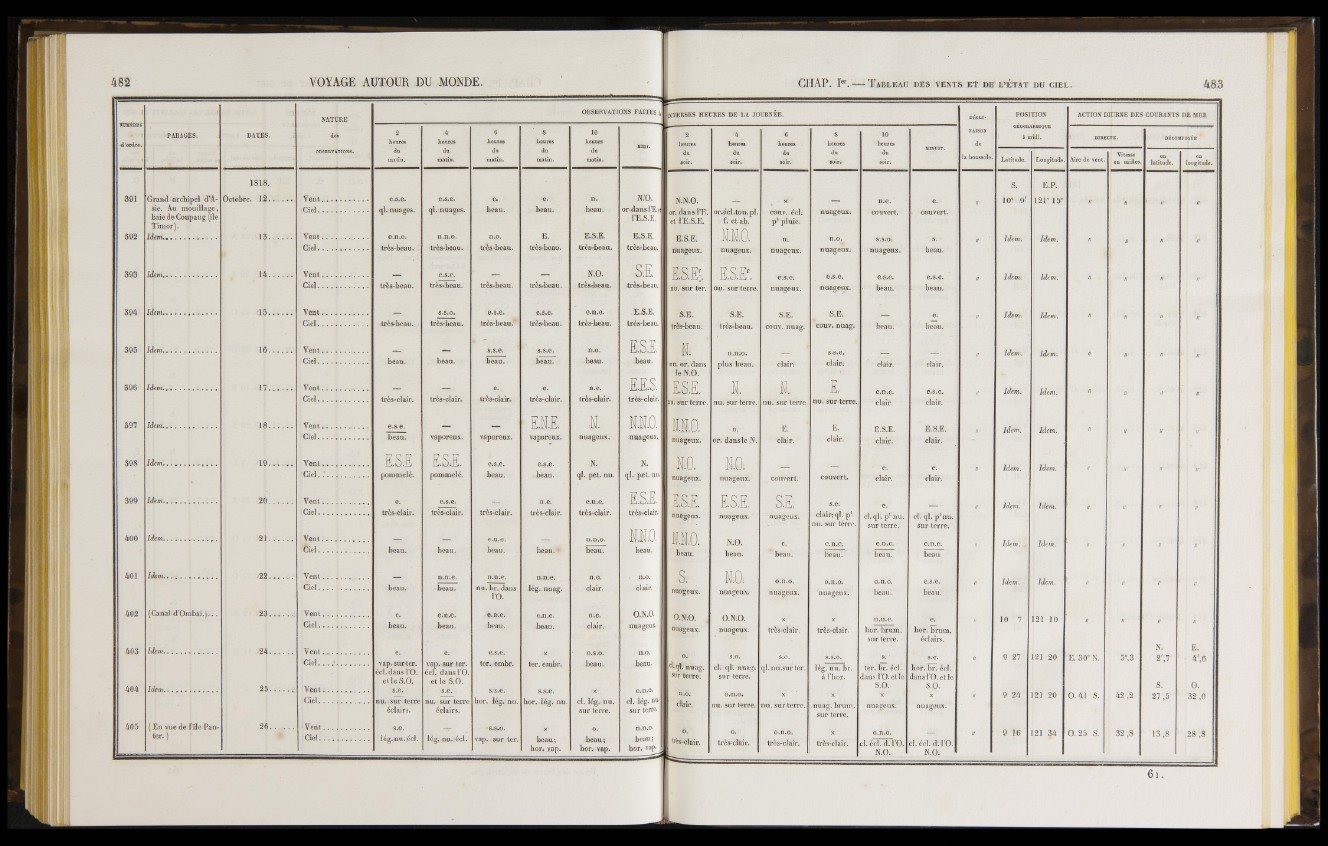 482 VOYAGE AUTOUR DU MONDE.
NUMÉROS d'ordre. PARAGES. DATES. NATURE des OBSERVATIONS.
OBSERVATIONS FAITES A
2 heures du matin. 4 heures du matin. 6 heures du matin. 8 heures du matin. 10 heures du matin. MIDI.
1818.
391 Grand archipel d'Asie. Au mouillage, baie de Coupang (île Timor). Octobre. 12 Vent e.s.e. e.s.e. e. e. n. N.O.
Ciel ql. nuages. ql. nuages. beau. beau. beau. or. dans l'E. et l'E.S.E.
392 Idem. 13 Vent e.n.e. n.n.o. n.o. E. E.S.E. E.S.E.
Ciel très-beau. très-beau. très-beau. très-beau. très-beau. très-beau.
393 Idem. 14 Vent — e.s.e. — — N.O. S.E.
Ciel très-beau. très-beau. très-beau. très-beau. très-beau. très-beau.
394 Idem. 15 Vent — s.s.o. e.s.e. e.s.e. e.n.e. E.S.E.
Ciel très-beau. très-beau. très-beau. très-beau. très-beau. très-beau.
395 Idem. 16 Vent — — s.s.e. s.s.e. n.o. E.S.E.
Ciel beau. beau. beau. beau. beau. beau.
396 Idem. 17 Vent — — e. e. n.e. E.E.S.
Ciel très-clair. très-clair. très-clair. très-clair. très-clair. très-clair.
397 Idem. 18 Vent e.s.e. — — E.N.E. N. N.N.O.
Ciel beau. vaporeux. vaporeux. vaporeux. nuageux. nuageux.
398 Idem. 19 Vent E.S.E. E.S.E. e.s.e. e.s.e. N. N.
Ciel pommelé. pommelé. beau. beau. ql. pet. nu. ql. pet. nu.
399 Idem. 20 Vent e. e.s.e. — n.e. e.n.e. E.S.E.
Ciel très-clair. très-clair. très-clair. très-clair. très-clair. très-clair.
400 Idem. 21 Vent — — e.n.e. — n.n.o. N.N.O.
Ciel beau. beau. beau. beau. beau. beau.
401 Idem. 22 Vent — n.n.e. n.n.e. n.n.e. n.o. n.o.
Ciel beau. beau. nu. br. dans l'O. lég. nuag. clair. clair.
402 (Canal d'Ombai.) 23 Vent e. e.n.e. e.n.e. e.n.e. n.e. O.N.O.
Ciel beau. beau. beau. beau. clair. nuageux.
403 Idem. 24 Vent e. e. e.s.e. x o.s.o. n.o.
Ciel vap. sur ter. écl. dans l'O. et le S.O. vap. sur ter. écl. dans l'O. et le S.O. ter. embr. ter. embr. beau. beau.
404 Idem. 25 Vent s.e. s.e. s.s.e. s.s.e. x o.n.o.
Ciel nu. sur terre éclairs. nu. sur terre éclairs. hor. lég. nu. hor. lég. nu. cl. lég. nu. sur terre. cl. lég. nu. sur terre.
405 (En vue de l'île Panter.) 26 Vent s.e. — s.s.o. x o. n.n.o.
Ciel lég. nu. écl. lég. nu. écl. vap. sur ter. beau; hor. vap. beau; hor. vap. beau; hor. vap.
CHAP. Ier. — TABLEAU DES VENTS ET DE L'ÉTAT DU CIEL. 483
DIVERSES HEURES DE LA JOURNÉE.
2 heures du soir. 4 heures du soir. 6 heures du soir. 8 heures du soir. 10 heures du soir. MINUIT.
la boussole. POSITION GÉOGRAPHIQUE à midi. Latitude. Longitude. ACTION DIURNE DES COURANTS DE MER DIRECTE. Aire de vent. Vitesse en milles DÉCOMPOSÉE en latitude. en longitude.
S. E.P.
N.N.O. — x — n.e. e. 10° 9' 121° 15'
or. dans l'E. et l'E.S.E. or. écl. ton. pl. f. et ab. couv. écl. pte pluie. nuageux. couvert. couvert.
E.S.E. N.N.O. n. n.o. s.s.o. s. Idem. Idem.
nuageux. nuageux. nuageux. nuageux. nuageux. beau.
E.S.E. E.S.E. e.s.e. e.s.e. e.s.e. e.s.e. Idem. Idem.
nu. sur ter. nu. sur terre. nuageux. nuageux. beau. beau.
S.E. S.E. S.E. S.E. — e. Idem. Idem.
très-beau. très-beau. couv. nuag. couv. nuag. beau. beau.
N. n.n.o. — s.s.e. — — Idem. Idem.
nu. or. dans le N.O. plus beau. clair. clair. clair. clair.
E.S.E. N. N. E. e.n.e. e.s.e. Idem. Idem.
nu. sur terre. nu. sur terre. nu. sur terre. nu. sur terre. clair. clair.
N.N.O. n. E. E. E.S.E. E.S.E. Idem. Idem.
nuageux. or. dans le N. clair. clair. clair. clair.
N.O. N.O. — — e. e. Idem. Idem.
nuageux. nuageux. couvert. couvert. clair. clair.
E.S.E. E.S.E. S.E. s.e. e. — Idem. Idem.
nuageux. nuageux. nuageux. clair; ql. ps nu. sur terre. cl. ql. ps nu. sur terre. cl. ql. ps nu. sur terre.
N.N.O. N.O. e. e.n.e. e.n.e. e.n.e. Idem. Idem.
beau. beau. beau. beau. beau. beau.
S. N.O. o.n.o. o.n.o. o.n.o. e.s.e. Idem. Idem.
nuageux. nuageux. nuageux. nuageux. beau. beau.
O.N.O. O.N.O. x x n.n.e. e. 10 7 121 10
nuageux. nuageux. très-clair. très-clair. hor. brum. sur terre. hor. brum. éclairs.
N. E.
o. s.o. s.o. s.s.o. s. s.e. 9 27 121 20 E. 30° N. 5m,3 2',7 4',6
cl. ql. nuag. sur terre. cl. ql. nuag. sur terre. ql. nu. sur ter. lég. nu. br. à l'hor. ter. br. écl. dans l'O. et le S.O. hor. br. écl. dans l'O. et le S.O.
S. O.
n.o. o.n.o. x x x x 9 24 121 20 O. 41 S. 42 ,2 27 ,5 32 ,0
clair. nu. sur terre. nu. sur terre. nuag. brum. sur terre. nuageux. nuageux.
o. o. o.n.o. x o.n.o. — 9 16 121 34 O. 25 S. 32 ,8 13 ,8 28 ,8
très-clair. très-clair. très-clair. très-clair. cl. écl. d. l'O. N.O. cl. écl. d. l'O. N.O.
61.